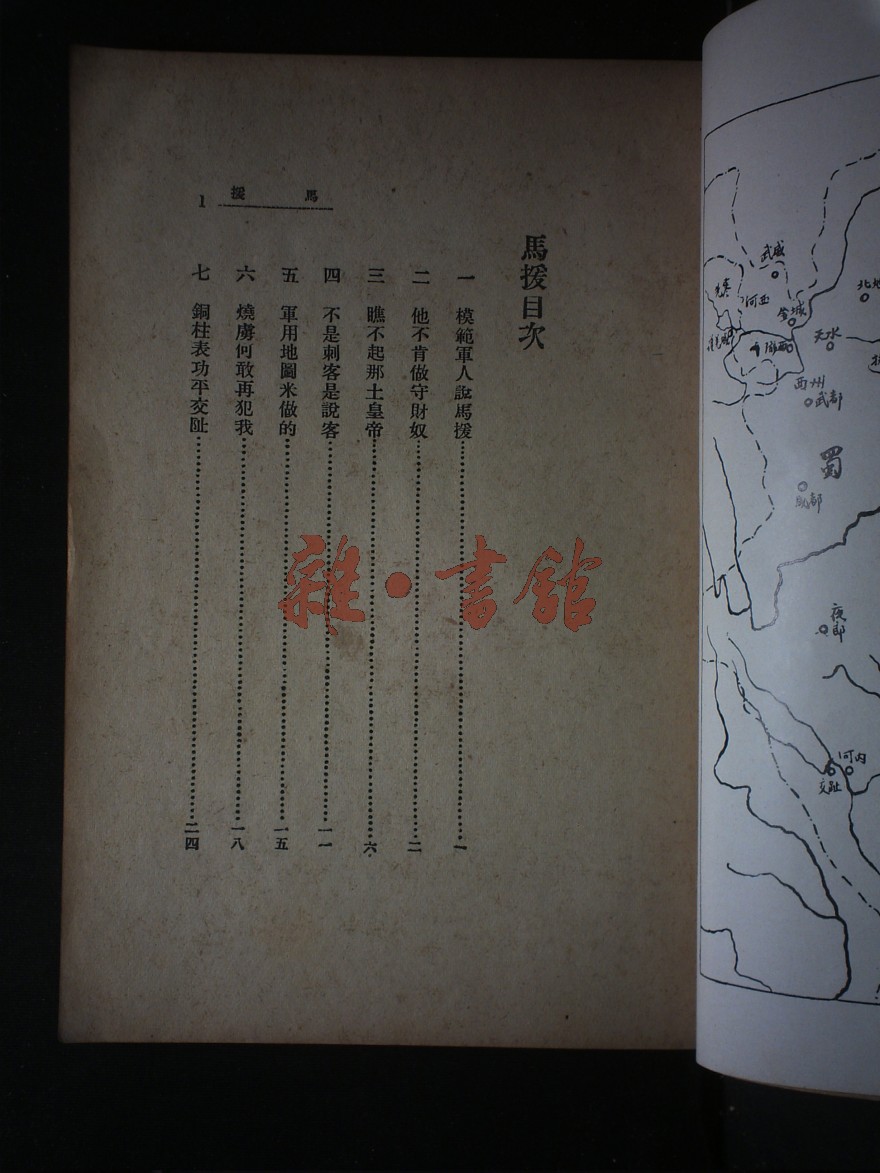 馬援目次
一 模範軍人說馬援 一
二 他不肯做守財奴 二
三 瞧不起那土皇帝 六
四 不是刺客是說客 一一
五 軍用地圖米做的 一五
六 燒虜何敢再犯我 一八
七 銅柱表功平交趾 二四
馬援
1
雜·書館
武威
河西
金城
北地
天水
隴西
西州
武都
蜀
成都
夜郎
河内
交趾